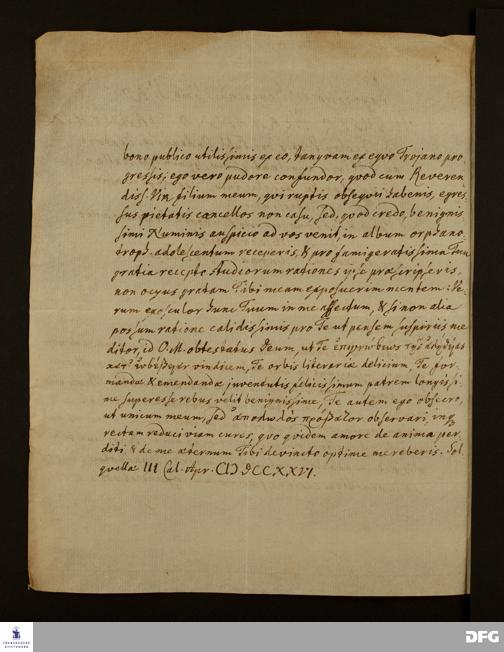 bono publico utilissimis ex eo, tanquam ex equo Trojano pro-
gressis; ego vero pudore confundor, quod cum Reveren
diss. Vir, filium meum, qui ruptis obsequii habenis, egres
sus pietatis cancellos non casu, sed, quod credo, benignis
simi Numinis auspicio ad vos venit, in album orphano
troph. adolescentum receperis, & pro famigeratissima Tua
gratia recepto studiorum rationes ipse præscripseris,
non ocyus gratam Tibi meam exposuerim mentem: Ve-
rum exosculor hunc Tuum in me affectum, & si non alia
possum ratione calidissimis pro Te ut pensem suspiriis me
ditor, id O. M. obtestatus Deum, ut Te
vindicem, Te orbis literariæ delicium, Te for-
mandæ & emendandæ juventutis felicissimum patrem longis, si
ne superesse rebus velit benignissime, Te autem ego obsecro,
ut unicum meum, sed ἀπολωλὸς πρόβατον observari, inq
rectam reduci viam cures, quo quidem amore de anima per
diti, & de me æternum Tibi devincto optime mereberis. Sol
quellæ III Cal. Apr. CIƆ IƆCCXXVI.
FRANCKESCHE
STIFTUNGEN
DFG